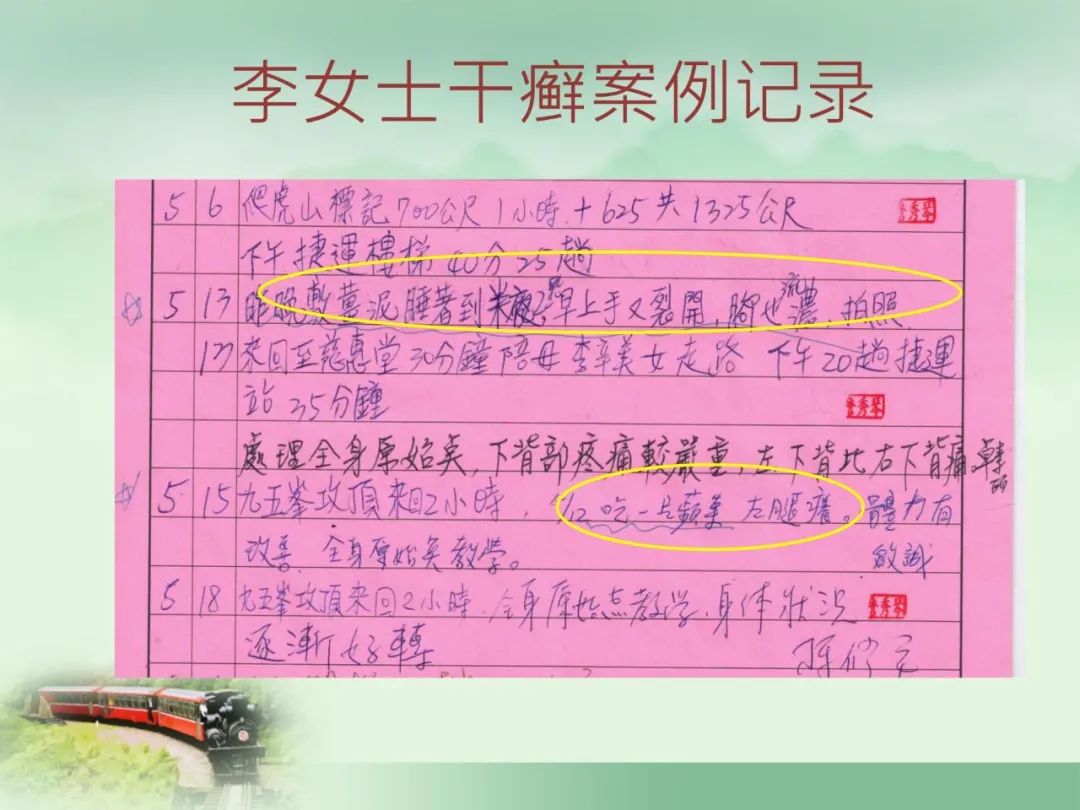 李女士干癣案例记录
5 6 爬虎山標記700公尺 1小時 + 625 共 1325公尺
下午捷運樓梯 40分 25趟
5 13 昨晚敷薑泥睡著到半夜 早上手又裂開，腳也流濃，拍照
來回至慈惠堂30分鐘陪母李辛美女走路 下午20趟捷運
站 35分鐘
處理全身原始点，下背部疼痛較嚴重，左下背比右下背痛
5 15 九五峯攻頂來回2小時， 吃一片蘋果 左腿癢。體力有
改善 全身原始点教學。
5 18 九五峯攻頂來回2小時，全身原始点教学，身体狀況
逐漸好轉